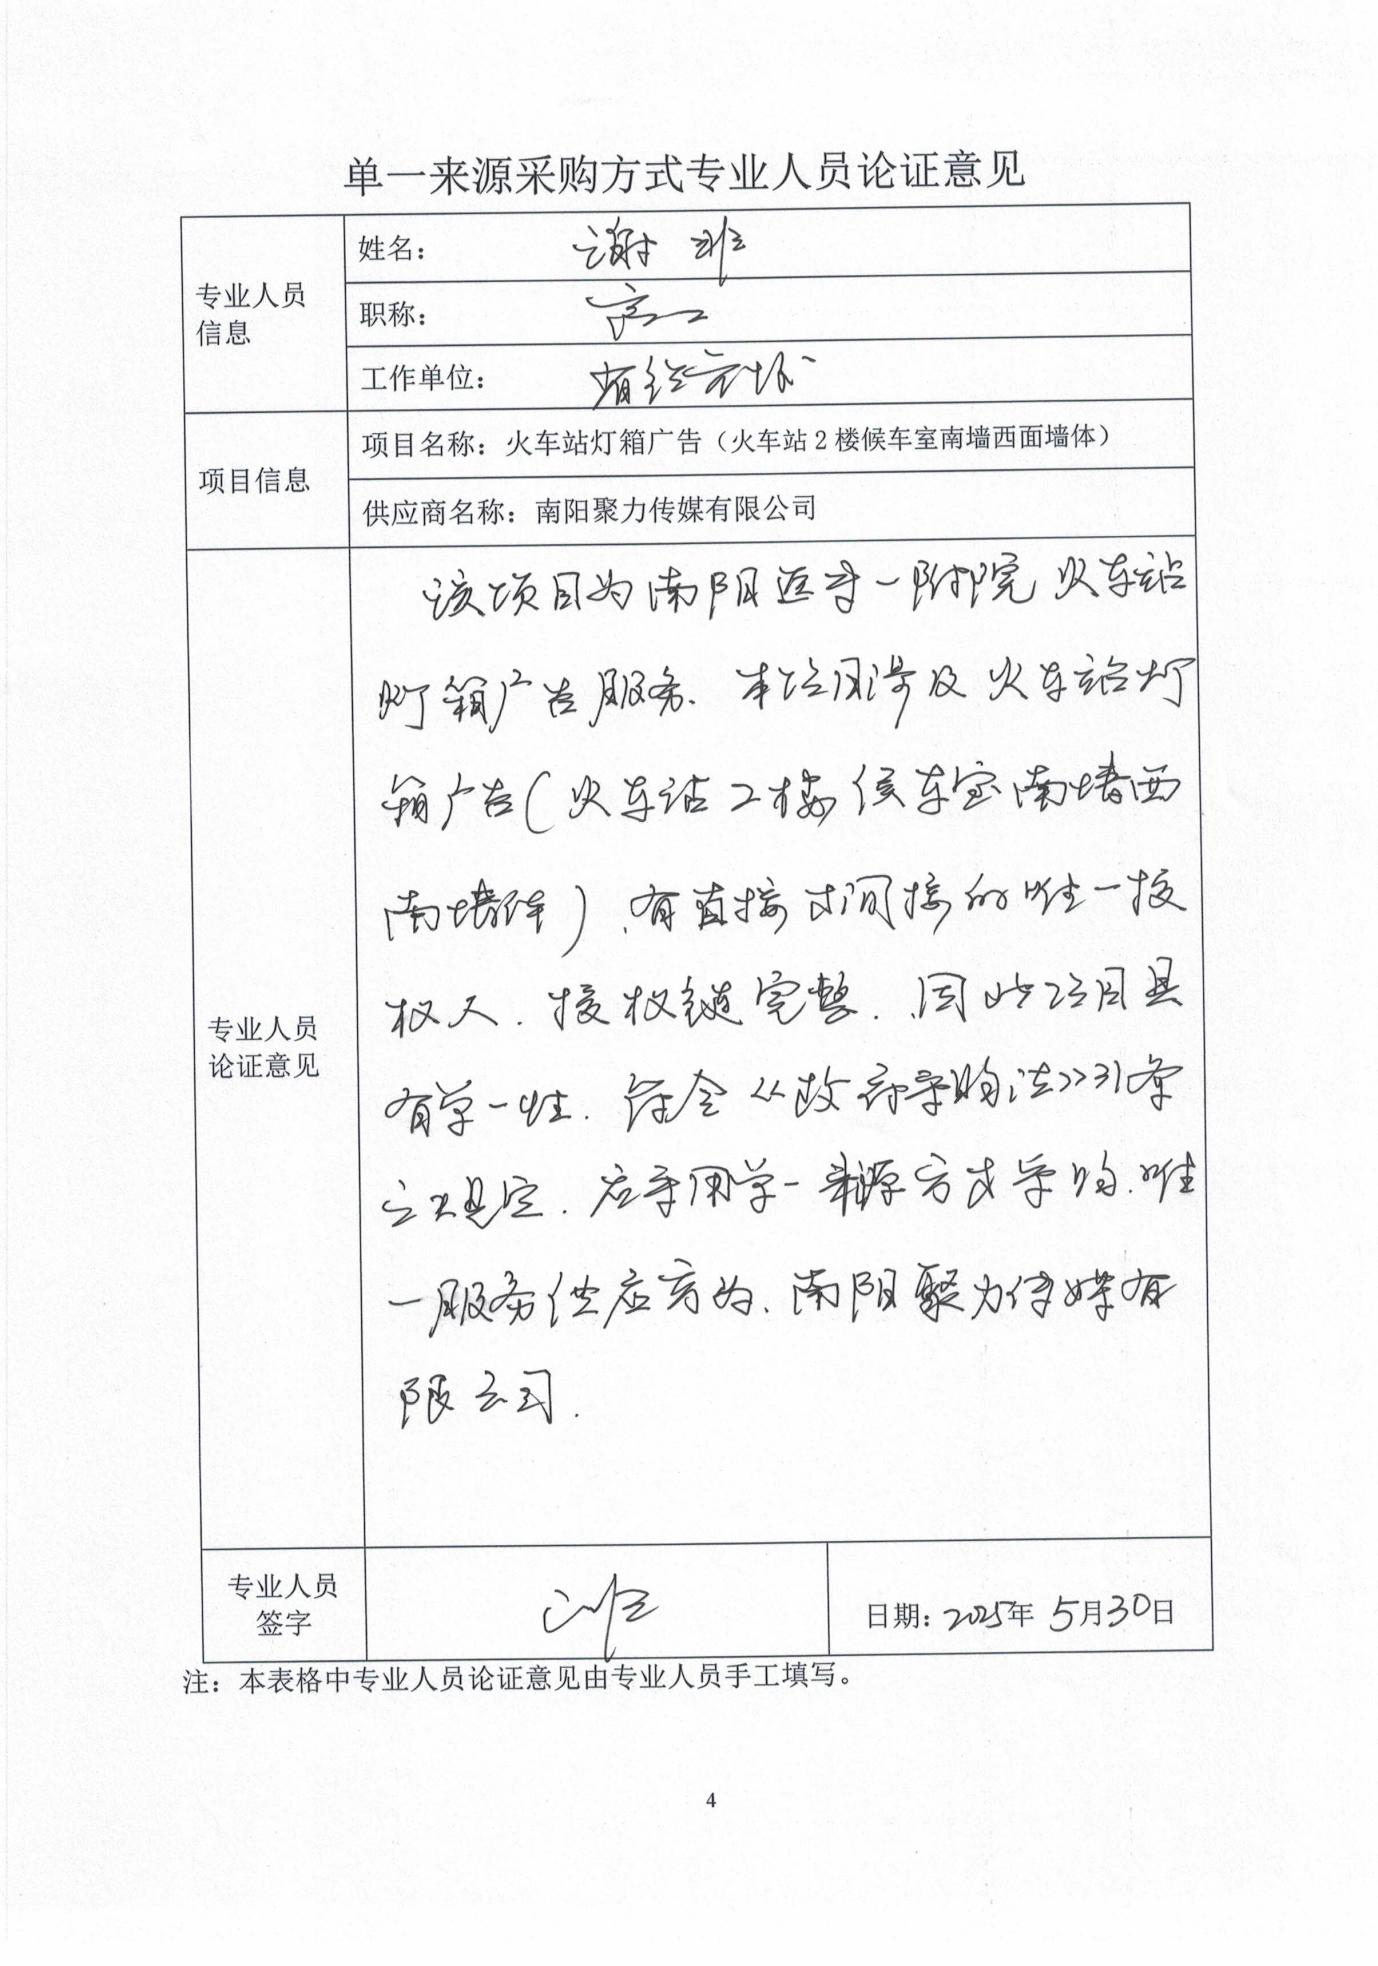 单一来源采购方式专业人员论证意见
专业人员
信息
姓名： 谢班
职称： 高工
工作单位：
项目信息
项目名称：火车站灯箱广告（火车站2楼候车室南墙西面墙体）
供应商名称：南阳聚力传媒有限公司
专业人员
论证意见
该项目为南阳医专一附院火车站
灯箱广告服务.本项目涉及火车站灯
箱广告(火车站2楼候车室南墙西
南墙体)、有直接或间接的唯一授
权人.授权链完整.因此项目具
有单一性.符合《政府采购法》31条
之规定.应采用单一来源方式采购.唯
一服务供应商为、南阳聚力传媒有
限公司.
专业人员
签字
日期：2025年 5月30日
注：本表格中专业人员论证意见由专业人员手工填写。
4